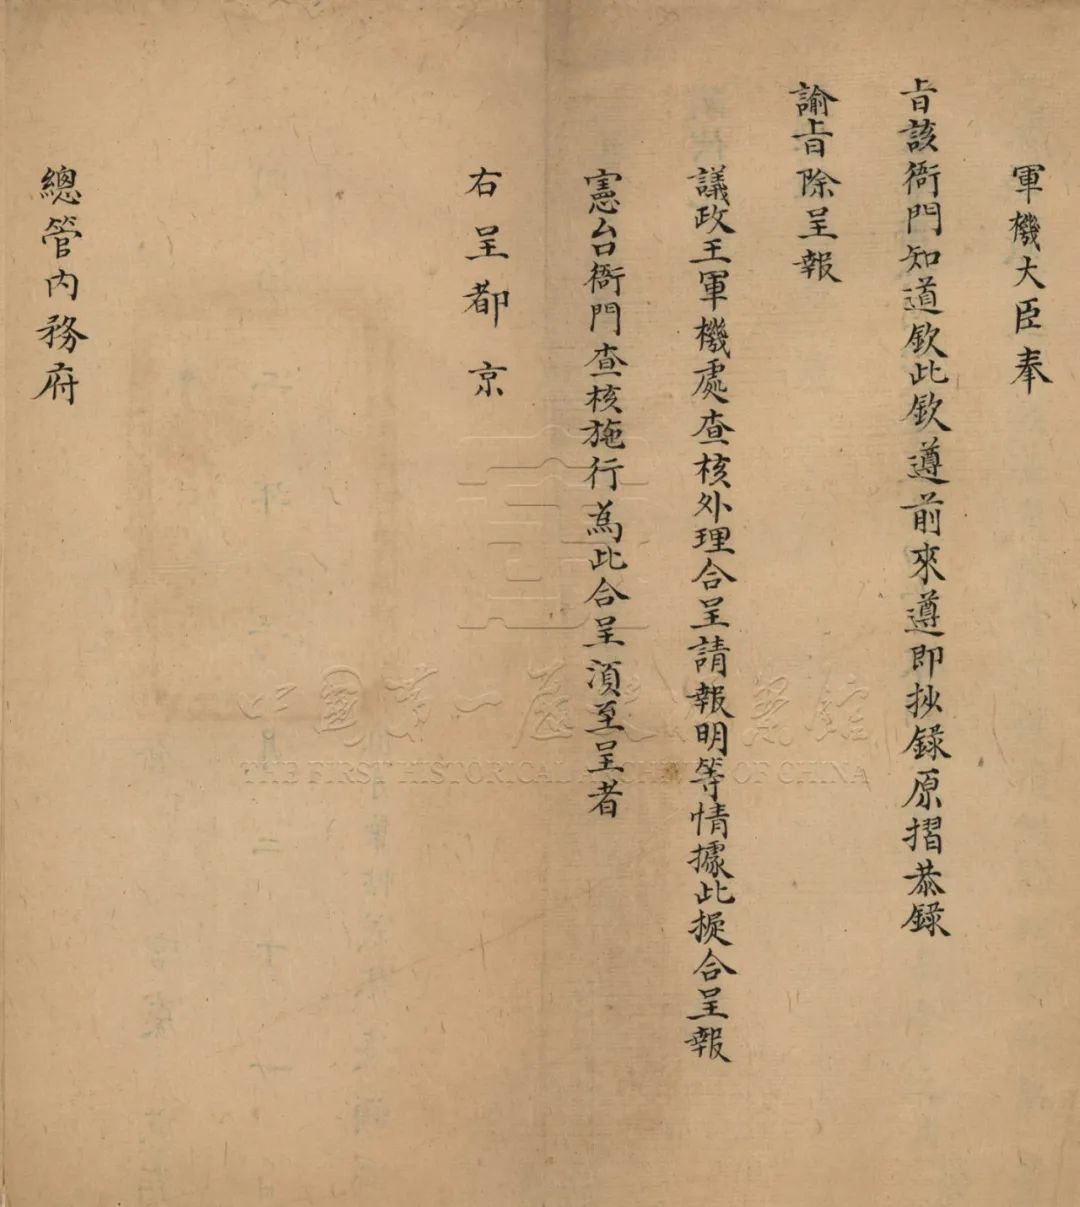 軍機大臣奉
旨該衙門知道欽此欽遵前來遵即抄録原摺恭録
諭旨除呈報
議政王軍機處查核外理合呈請報明等情據此擬合呈報
憲台衙門查核施行為此合呈湏至呈者
右呈都京
總管内務府
中国第一历史档案馆
THE FIRST HISTORICAL ARCHIVES OF CHINA